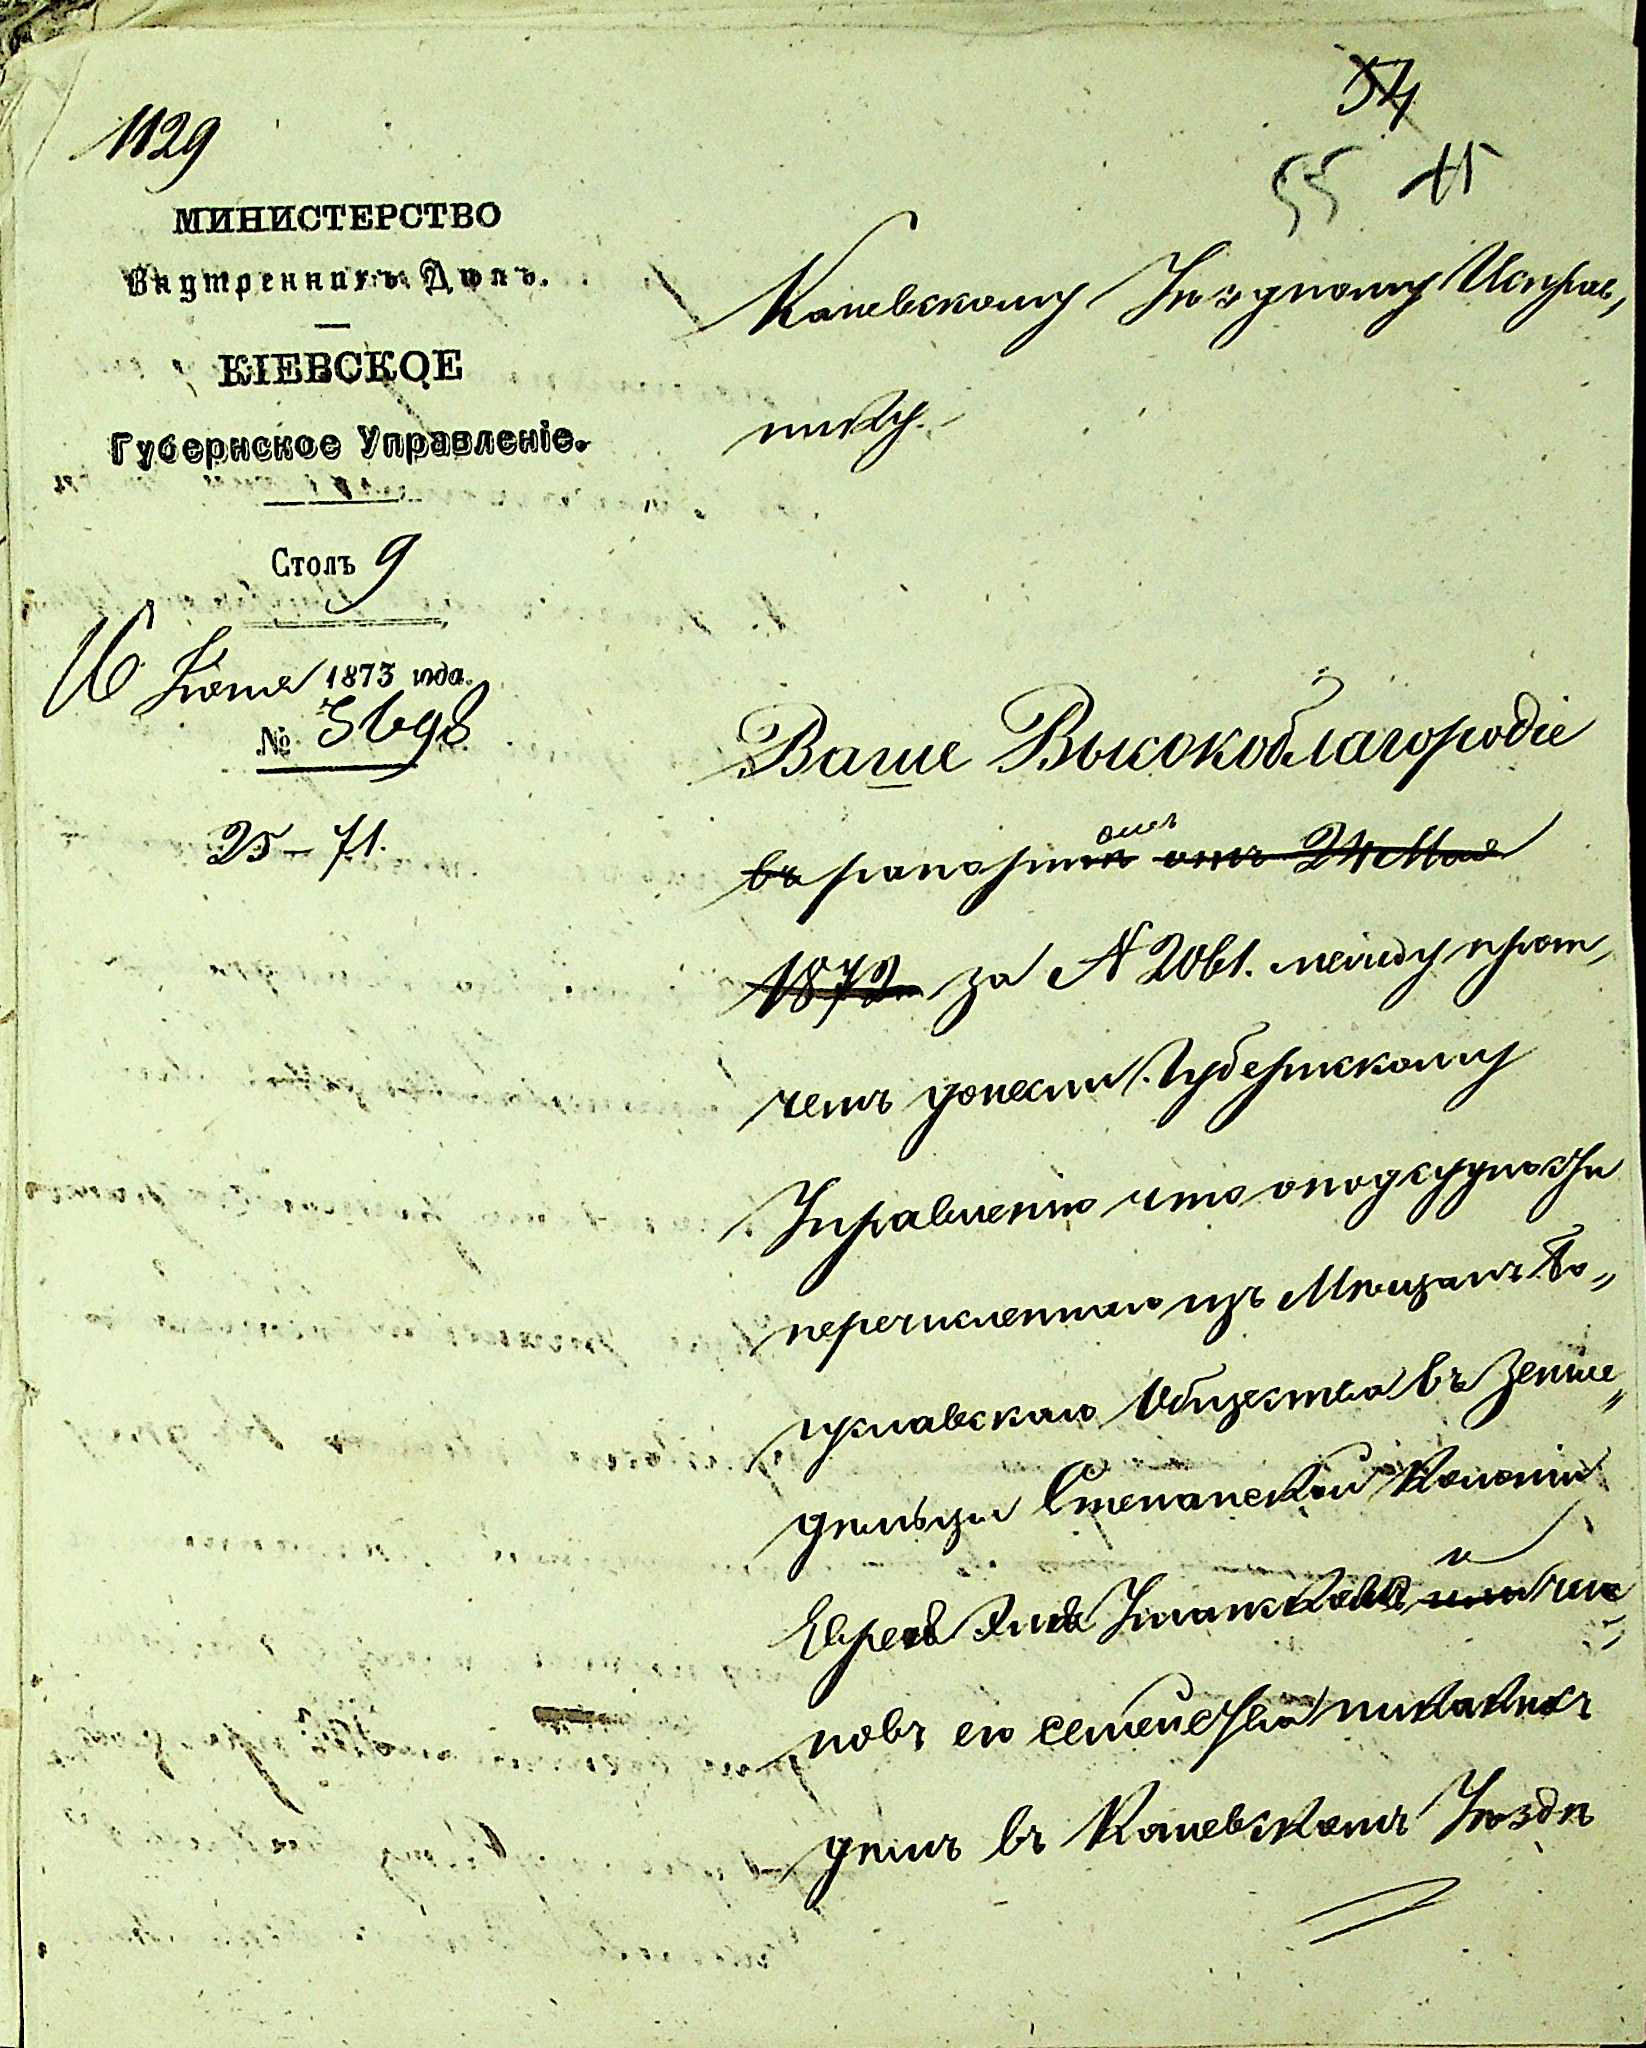 1129
54
55 45
МИНИСТЕРСТВО
Внутреннихъ Дѣлъ.
КІЕВСКОЕ
Губернское Управленіе.
Столъ 9
16 Іюня 1873 года.
№ 3698
25-71.
Каневскому Уѣздному Исправ„
нику.
Ваше Высокоблагородіе
въ рапортѣ омъ отъ 24 Мая
1872 за № 2061. между проч„
чемъ донесли Губернскому
Управленію что о подсудности
перечисленнаго изъ Мѣщанъ Бо„
гуславскаго Общества въ земле„
дѣльцы Степанской Колоніи
Еврея и чле„
новъ его семейства никакихъ
дѣлъ въ Каневскомъ Уѣздѣ